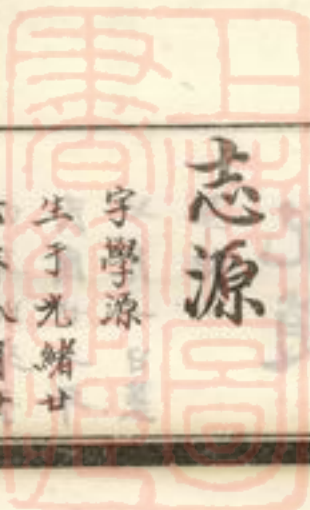 志源
字學源
生于光緒廿